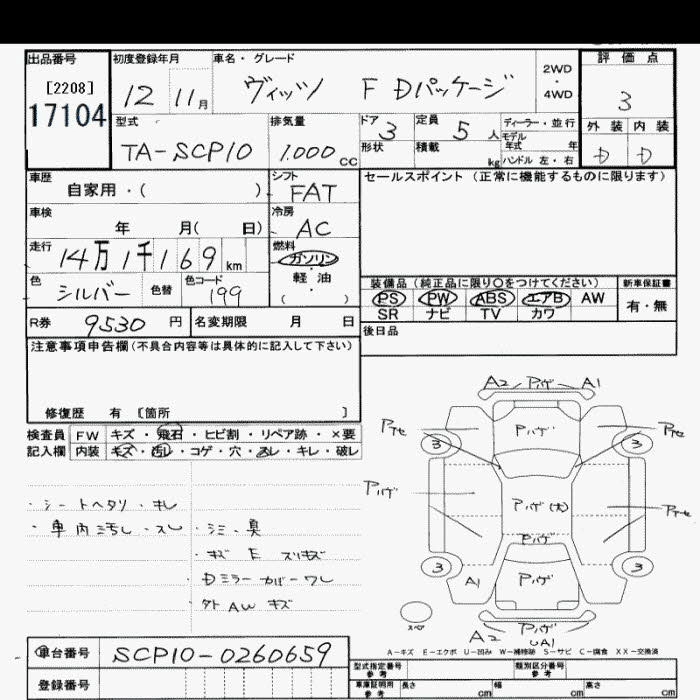 出品番号 初度登録年月 車名・グレード 2WD・4WD 評価点
[2208] 17104 12 11月 ヴィッツ F Dパッケージ 3
型式 排気量 ドア 3 定員 5人 ディーラー・並行 外装 内装
TA-SCP10 1.000cc 形状 積載 kg モデル年式 年 D D
ハンドル 左・右
車歴 シフト セールスポイント(正常に機能するものに限ります)
自家用・( ) FAT
車検 冷房
年 月( 日) AC
走行 14万1千169km 燃料
ガソリン・軽油
( )
色 シルバー 色替 色コード 199
装備品(純正品に限り○をつけてください) 新車保証書
PS PW ABS エアB AW 有・無
SR ナビ TV カワ
R券 9530円 名変期限 月 日 後日品
注意事項申告欄(不具合内容等は具体的に記入して下さい)
修復歴 有 [箇所 ]
検査員記入欄 FW キズ・飛石・ヒビ割・リペア跡・×要
内装 キズ・汚レ・コゲ・穴・スレ・キレ・破レ
・シートヘタリ・キレ
・車内汚レ・スレ ・シミ・臭
・キズ E スリキズ
・Dミラーカバーワレ
外 AW キズ
A2 Pハゲ A1
Pハゲ
3 3
Pハゲ
Pハゲ(大)
Pハゲ
3 3
A1 Pハゲ
スペア
A2 Pハゲ
UA1
A-キズ E-エクボ U-凹み W-補修跡 S-サビ C-腐食 XX-交換済
車台番号 SCP10-0260659
登録番号
型式指定番号 参考 類別区分番号 参考
車庫証明用 参考 長さ cm 幅 cm 高さ cm